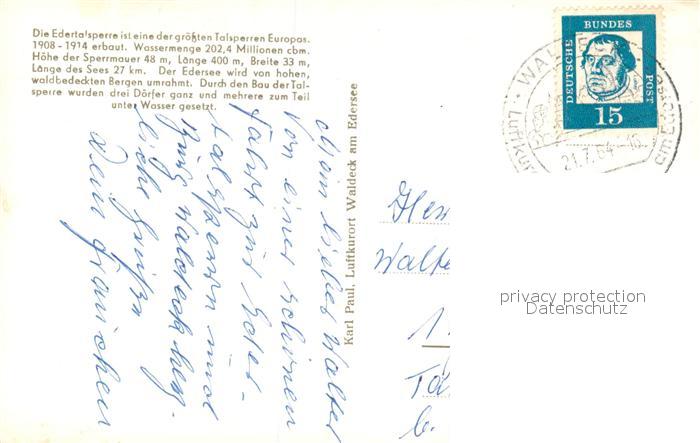 Die Edertalsperre ist eine der größten Talsperren Europas.
1908 - 1914 erbaut. Wassermenge 202,4 Millionen cbm.
Höhe der Sperrmauer 48 m, Länge 400 m, Breite 33 m,
Länge des Sees 27 km. Der Edersee wird von hohen,
waldbedeckten Bergen umrahmt. Durch den Bau der Tal-
sperre wurden drei Dörfer ganz und mehrere zum Teil
unter Wasser gesetzt.
Mein lieber Walter
Von einer schönen
Fahrt zur Eder-
talsperre und
Burg Waldeck herz-
liche Grüße
Dein Frauchen
Karl Paul, Luftkurort Waldeck am Edersee
DEUTSCHE
BUNDES
POST
15
WALDE
21.7.64-16
am Edersee
Her
Walte
1
Ta
b.
privacy protection
Datenschutz